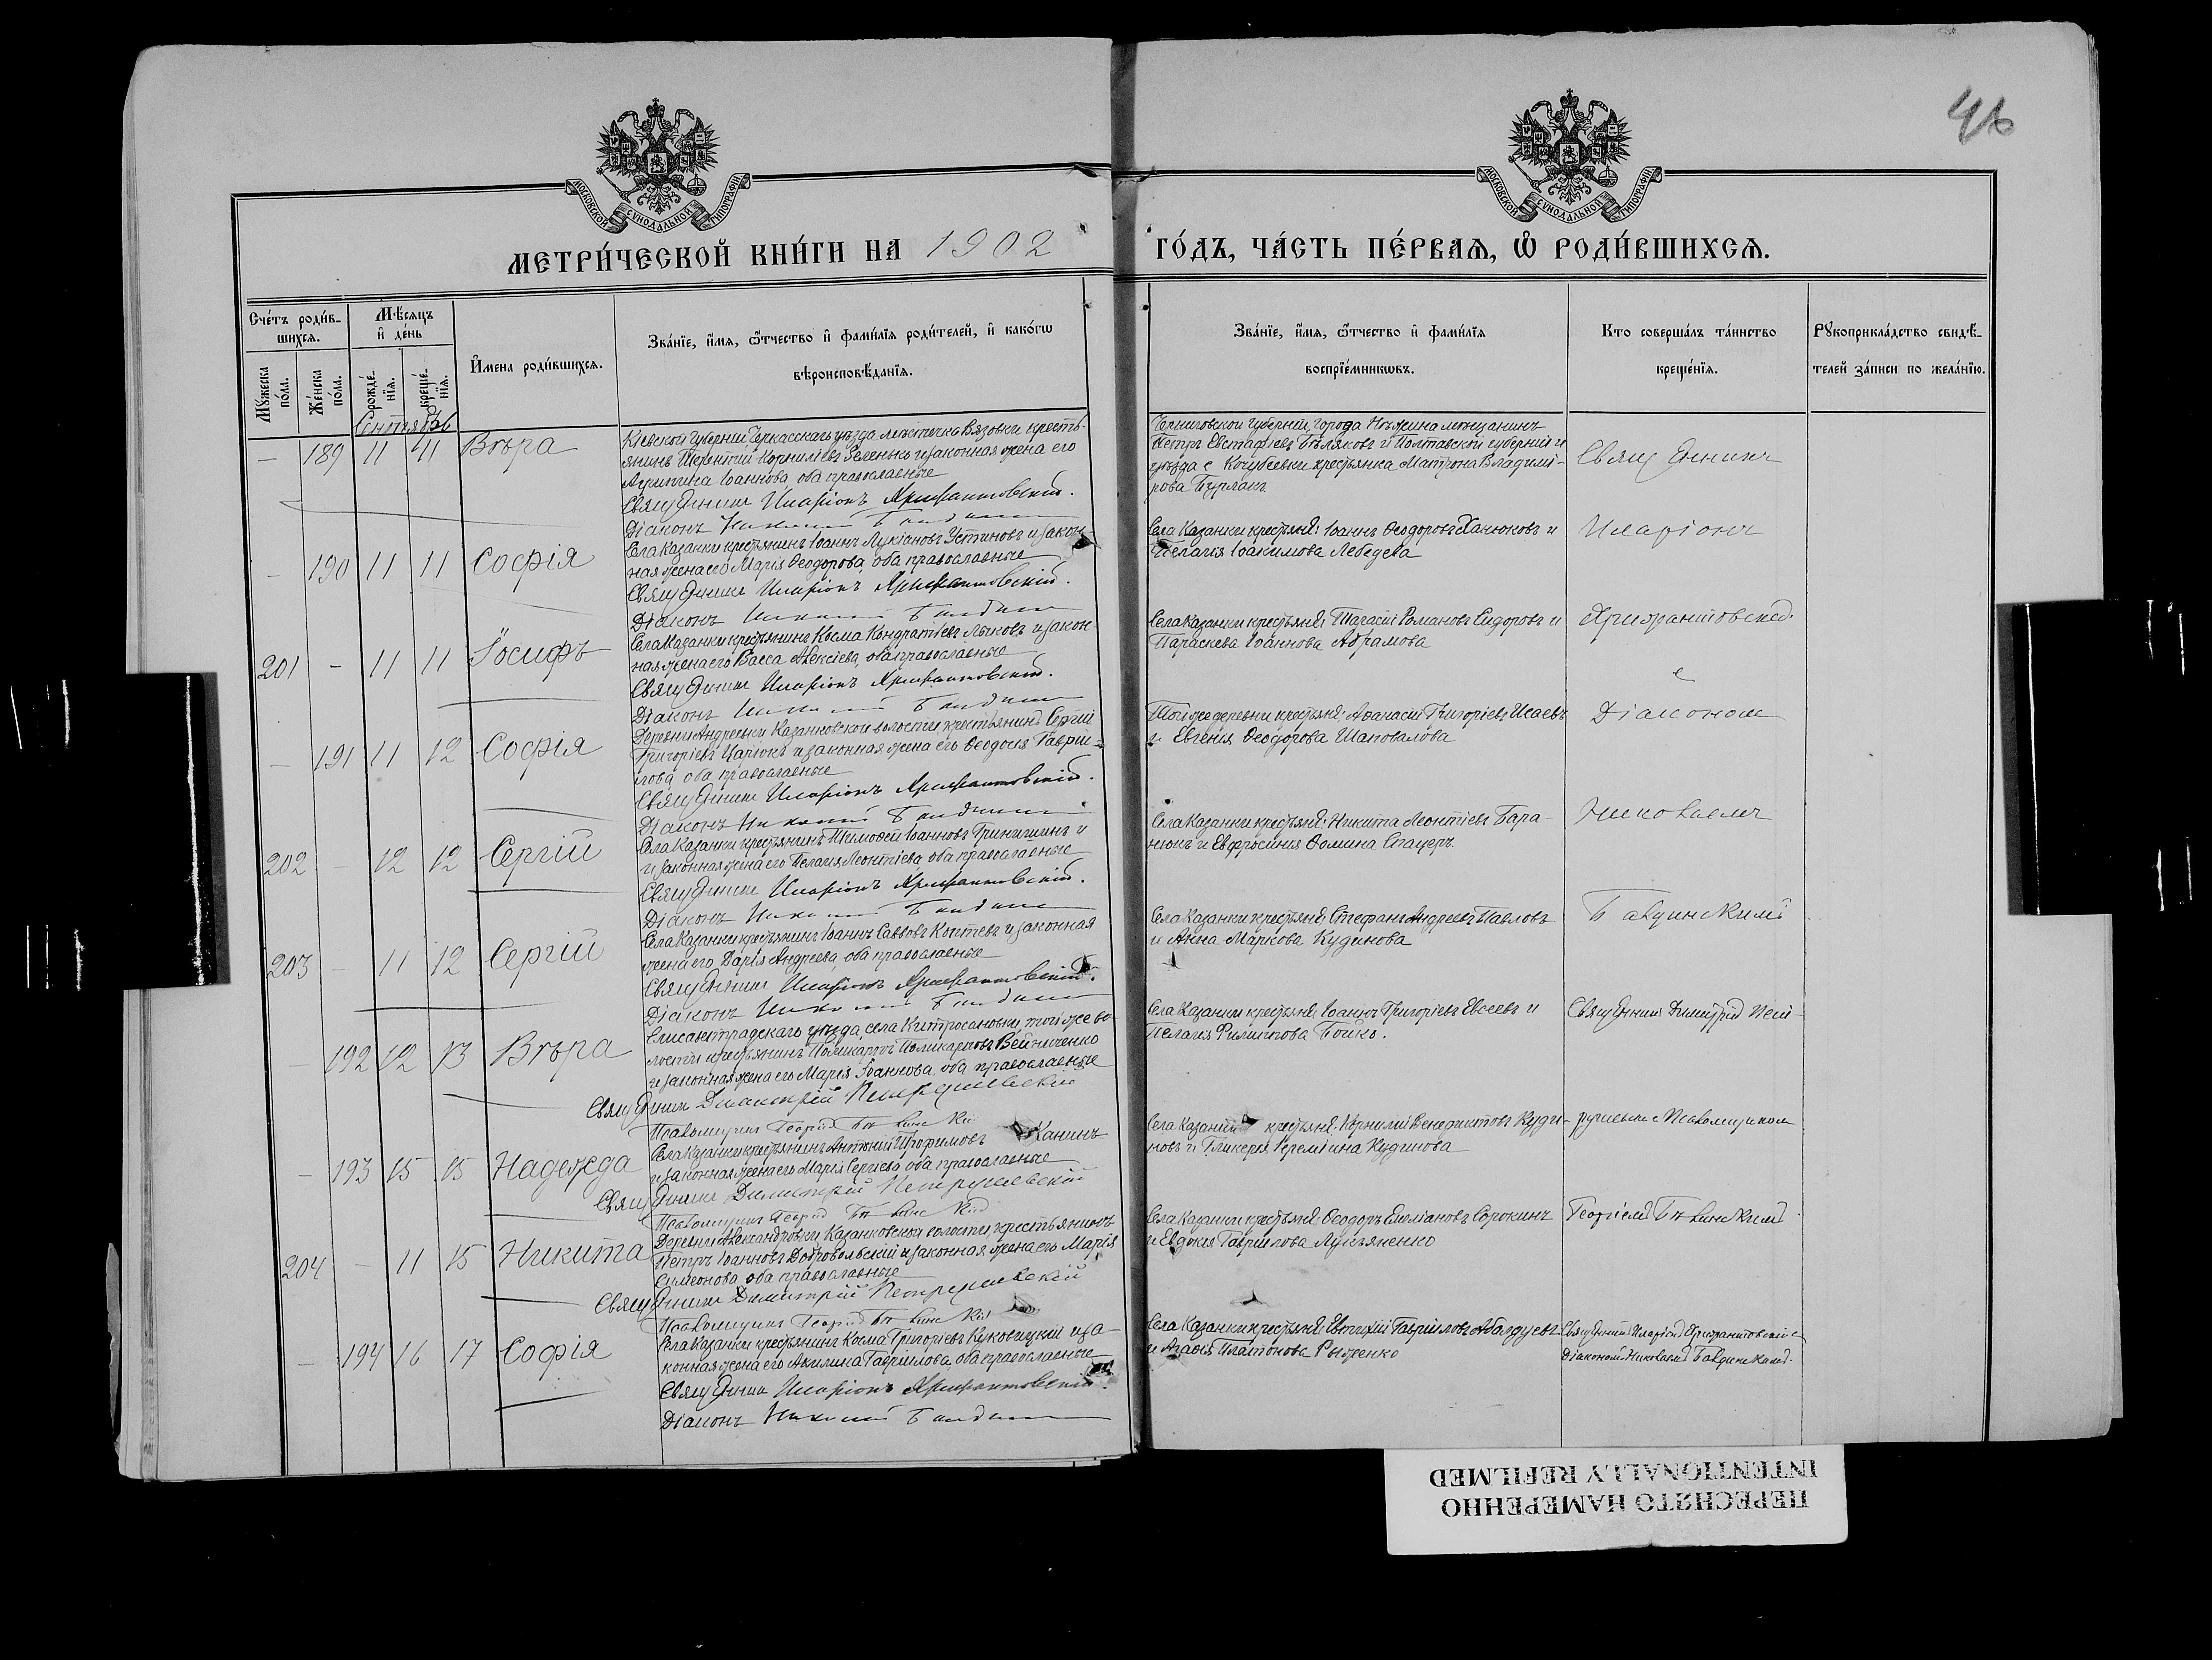 46
МОСКОВСКОЙ СѴНОДАЛЬНОЙ ТИПОГРАФІИ
МОСКОВСКОЙ СѴНОДАЛЬНОЙ ТИПОГРАФІИ
МЕТРИ́ЧЕСКОЙ КНИ́ГИ НА 1902 ГО́ДЪ, ЧА́СТЬ ПЕ́РВАЯ, Ѽ РОДИ́ВШИХСЯ.
Сче́тъ роди́в-
шихся.
Мѣ́сяцъ
и҆ де́нь
Му́жеска по́ла.
Же́нска по́ла.
рожде́-нїя.
креще́-нїя.
И҆мена роди́вшихся.
Зва́нїе, и҆́мя, ѻ҆́тчество и҆ фами́лїя роди́телей, и҆ како́гѡ
вѣроисповѣ́данїя.
Зва́нїе, и҆́мя, ѻ҆́тчество и҆ фами́лїя
воспрїе́мникѡвъ.
Кто соверша́лъ та́инство
креще́нїя.
Рꙋкоприкла́дство свидѣ́-
телей за́писи по жела́нїю.
Сентябрь
— 189 11 11 Вѣра
Кіевской губерніи Черкасскаго уѣзда мѣстечка Вязовка кресть-
янинъ Терентій Корниліевъ Зеленько и законная жена его
Агрипина Іоаннова, оба православные
Священникъ Иларіонъ Хрисанфовскій.
Діаконъ Николай
Черниговской губерніи, города Нѣжина мѣщанинъ
Петръ Евстафіевъ Бѣляковъ и Полтавской губерніи и
уѣзда с. Кочубеевки крестьянка Матрона Владимі-
рова Бурлакъ
— 190 11 11 Софія
Села Казанки крестьянинъ Іоаннъ Лукіановъ Устиновъ и закон-
ная жена его Марія Ѳеодорова, оба православные
Священникъ Иларіонъ Хрисанфовскій.
Діаконъ Николай
Села Казанки крестьяне: Іоаннъ Ѳеодоровъ Ханюковъ и
Пелагія Іоакимова Лебедева
201 — 11 11 Іосифъ
Села Казанки крестьянинъ Косма Кондратіевъ Лычовъ и закон-
ная жена его Васса Алексіева, оба православные
Священникъ Иларіонъ Хрисанфовскій.
Діаконъ Николай
Села Казанки крестьяне: Тарасій Романовъ Сидоровъ и
Параскева Іоаннова Абрамова
— 191 11 12 Софія
Деревни Андреевки Казанковской волости крестьянинъ Сергій
Григоріевъ Царюкъ и законная жена его Ѳеодосія Гавріи-
лова, оба православные
Священникъ Иларіонъ Хрисанфовскій.
Діаконъ Николай
Той же деревни крестьяне: Аѳанасій Григоріевъ Исаевъ
и Евгенія Ѳеодорова Шаповалова
202 — 12 12 Сергій
Села Казанки крестьянинъ Тимоѳей Іоанновъ Гринишинъ и
и законная жена его Пелагія Леонтіева, оба православные
Священникъ Иларіонъ Хрисанфовскій.
Діаконъ Николай
Села Казанки крестьяне: Никита Леонтіевъ Бара-
нюкъ и Евфросинія Ѳомина Стацеръ
203 — 11 12 Сергій
Села Казанки крестьянинъ Іоаннъ Саввовъ Коптевъ и законная
жена его Дарія Андреева, оба православные
Священникъ Иларіонъ Хрисанфовскій.
Діаконъ Николай
Села Казанки крестьяне: Стефанъ Андреевъ Павловъ
и Анна Маркова Кудинова
Священникъ
Иларіонъ
Хрисанфовскій
с
Діакономъ
Николаемъ
— 192 12 13 Вѣра
Елисаветградскаго уѣзда, села Китросановки, той же во-
лости крестьянинъ Поликарпъ Поликарповъ Вейниченко
и законная жена его Марія Іоаннова, оба православные
Священникъ Димитрій Петрушевскій
Псаломщикъ Георгій
Села Казанки крестьяне: Іоаннъ Григоріевъ Евсеевъ и
Пелагія Филиппова Бойко.
Священникъ Димитрій Пет-
— 193 15 15 Надежда
Села Казанки крестьянинъ Антоній Трофимовъ Канинъ
и законная жена его Марія Сергіева, оба православные
Священникъ Димитрій Петрушевскій
Псаломщикъ Георгій
Села Казанки крестьяне: Корнилій Венедиктовъ Куди-
новъ и Гликерія Іереміина Кудинова
рушевскій с Псаломщикомъ
204 — 11 15 Никита
Деревни Александровки Казанковской волости, крестьянинъ
Петръ Іоанновъ Добровольскій и законная жена его Марія
Симеонова, оба православные
Священникъ Димитрій Петрушевскій
Псаломщикъ Георгій
Села Казанки крестьяне: Ѳеодоръ Емеліановъ Сорокинъ
и Евдокія Гавріилова Лукьяненко
Георгіемъ
— 194 16 17 Софія
Села Казанки крестьянинъ Косма Григоріевъ Куковицкій и за-
конная жена его Акилина Гавріилова, оба православные
Священникъ Иларіонъ Хрисанфовскій.
Діаконъ Николай
Села Казанки крестьяне: Евтихій Гавріиловъ Абалдуевъ
и Агаѳія Платонова Рыженко
Священникъ Иларіонъ Хрисанфовскій с
Діакономъ Николаемъ
ПЕРЕСНЯТО НАМЕРЕННО
INTENTIONALLY REFILMED